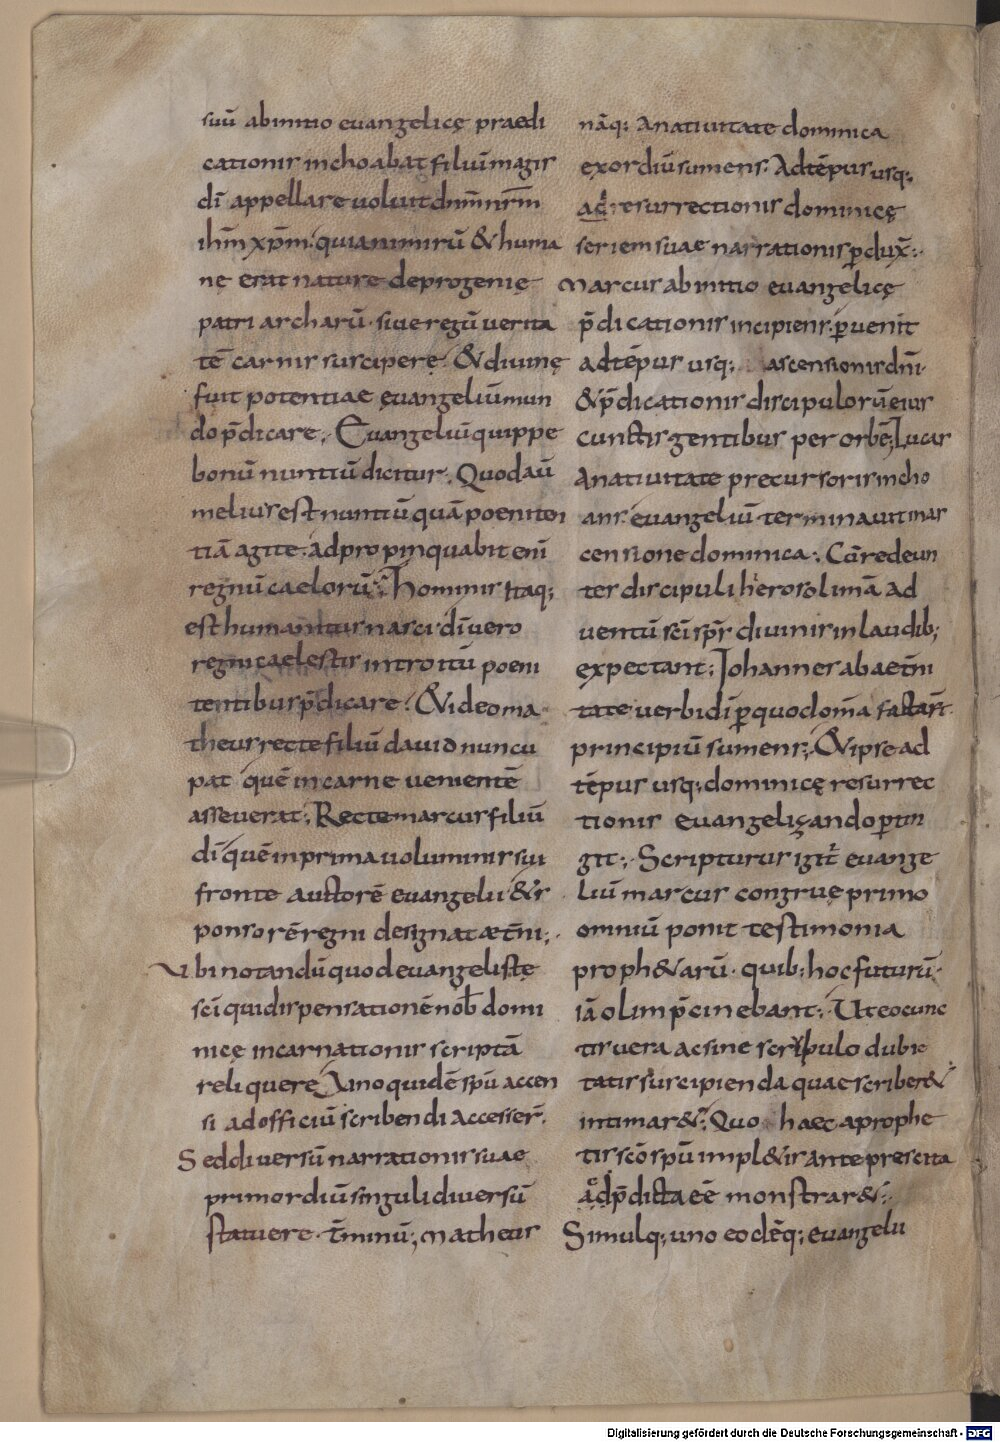 suū abinitio euangelicę praedi
cationis inchoabat filiū magis
dī appellare uoluit dn̄m nr̄m
ihm̄ xp̄m. quia nimirū & huma
nę erat naturę de progenię
patriarcharū. siue regū uerita
tē carnis susciperę. & diuinę
fuit potentiae ęuangeliū mun
do p̄dicare. Euangeliū quippe
bonū nuntiū dicitur. Quod aū
melius est nuntiū quā poeniten
tiā agite. adpropinquabit enī
regnū caelorū. Hominis itaq;
est humanitus nasci. dī uero
regni caelestis introitū poeni
tentibus p̄dicare. & ideo ma
theus recte filiū dauid nuncu
pat quē in carne uenientē
asseuerat. Recte marcus filiū
dī quē in prima uoluminis sui
fronte auctorē euangelii & s
ponsorē regni designat aet̄ni;
Vbi notandū quod euangelistę
sc̄i qui dispensationē nob̄ domi
nicę incarnationis scriptā
reliquere. Uno quidē sp̄u accen
si ad officiū scribendi accesser̄.
Sed diuersū narrationis suae
primordiū singuli diuersū
statuere t̄minū; matheus
nāq; a natiuitate dominica
exordiū sumens. Ad tēpus usq;
ad resurrectionis dominicę
seriem suae narrationis p̄dux̄.
Marcus ab initio euangelicę
p̄dicationis incipiens. puenit
ad tēpus usq; ascensionis dn̄i
& p̄dicationis discipulorū eius
cunctis gentibus per orbē; Lucas
A natiuitate precursoris incho
ans. euangeliū terminauit in as
censione dominica. Cū redeun
ter discipuli hierosolimā ad
uentū sc̄i sp̄s diuinis in laudib;
expectant; Iohannes ab aet̄ni
tate uerbi dī p quod om̄a facta s̄t
principiū sumens; & ipse ad
tēpus usq; dominicę resurrec
tionis euangeliçando ptin
git. Scripturus igit̄ euange
liū marcus congruę primo
omniū ponit testimonia
proph&arū. quib; hoc futurū.
iā olim p̄cinebant; Ut eo cunc
tis uera ac sine scrupulo dubie
tatis suscipienda quae scriber&
intimar&. Quo haec a prophe
tis sc̄o sp̄u impl&is ante prescita
ac p̄dicta eē monstrar&.
Simulq; uno eodēq; euangelii
Digitalisierung gefördert durch die Deutsche Forschungsgemeinschaft - DFG